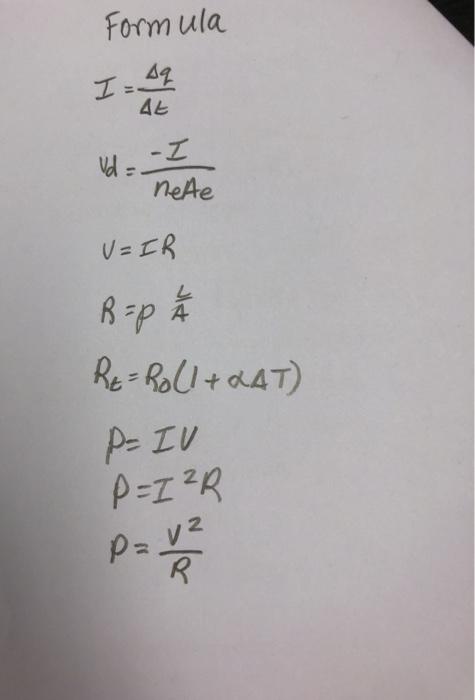 Formula
I = Δq/Δt
Vd = -I/neAe
V = IR
R = ρ L/A
Rt = R0(1 + αΔT)
P = IV
P = I²R
P = V²/R